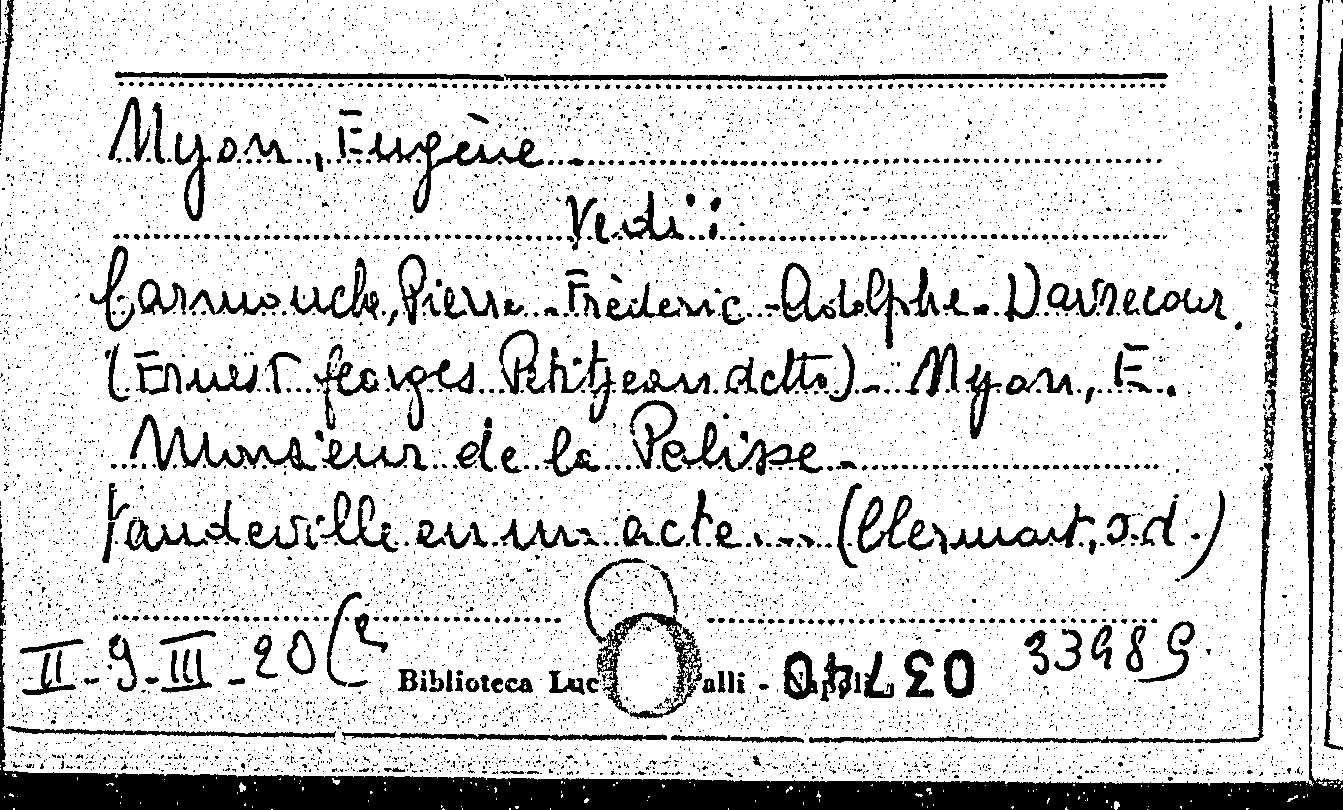 Nyon, Eugène.
Vedi:
Carmouche, Pierre-Frèderic-Adolphe-Davrecour.
(Ernest Georges Petitjean detto)- Nyon, E.
Monsieur de la Palisse.
Vaudeville en un acte... (Clermont, s.d.)
II-9-III-20(2 Biblioteca Luc alli - Napoli 33989